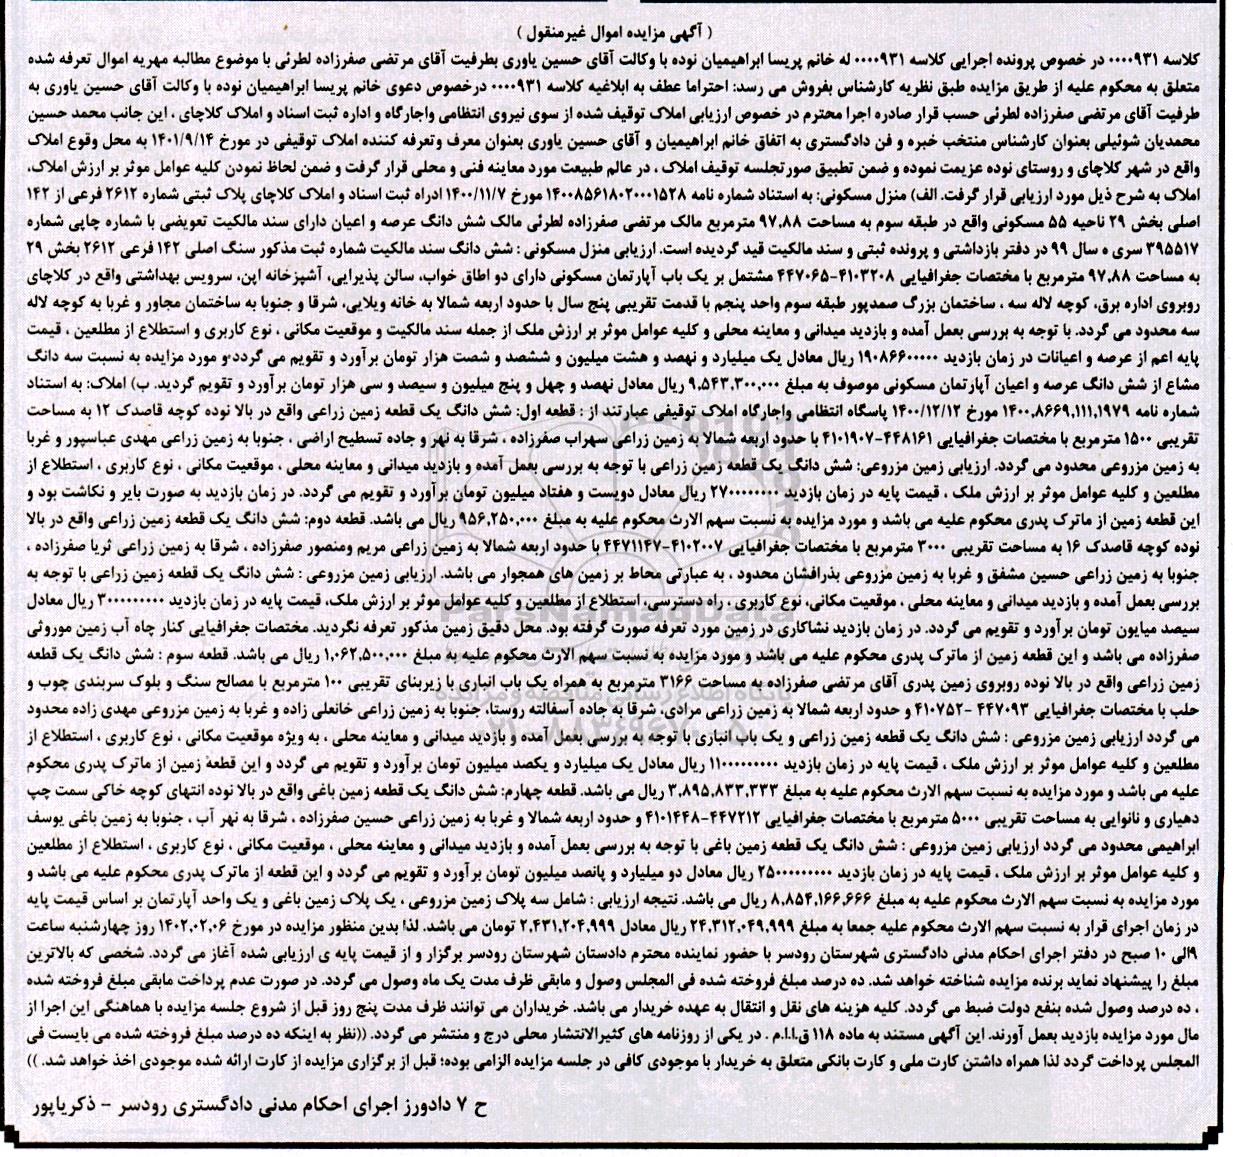 ( آگهی مزایده اموال غیرمنقول )
کلاسه ۰۰۰۰۹۳۱ در خصوص پرونده اجرایی کلاسه ۰۰۰۰۹۳۱ له خانم پریسا ابراهیمیان نوده با وکالت آقای حسین یاوری بطرفیت آقای مرتضی صفرزاده لطرئی با موضوع مطالبه مهریه اموال تعرفه شده
متعلق به محکوم علیه از طریق مزایده طبق نظریه کارشناس بفروش می رسد: احتراما عطف به ابلاغیه کلاسه ۰۰۰۰۹۳۱ درخصوص دعوی خانم پریسا ابراهیمیان نوده با وکالت آقای حسین یاوری به
طرفیت آقای مرتضی صفرزاده لطرئی حسب قرار صادره اجرا محترم در خصوص ارزیابی املاک توقیف شده از سوی نیروی انتظامی واجارگاه و اداره ثبت اسناد و املاک کلاچای ، این جانب محمد حسین
محمدیان شوئیلی بعنوان کارشناس منتخب خبره و فن دادگستری به اتفاق خانم ابراهیمیان و آقای حسین یاوری بعنوان معرف وتعرفه کننده املاک توقیفی در مورخ ۱۴۰۱/۹/۱۴ به محل وقوع املاک
واقع در شهر کلاچای و روستای نوده عزیمت نموده و ضمن تطبیق صورتجلسه توقیف املاک ، در عالم طبیعت مورد معاینه فنی و محلی قرار گرفت و ضمن لحاظ نمودن کلیه عوامل موثر بر ارزش املاک،
املاک به شرح ذیل مورد ارزیابی قرار گرفت. الف) منزل مسکونی: به استناد شماره نامه ۱۴۰۰۸۵۶۱۸۰۲۰۰۰۱۵۲۸ مورخ ۱۴۰۰/۱۱/۷ ادراه ثبت اسناد و املاک کلاچای پلاک ثبتی شماره ۲۶۱۲ فرعی از ۱۴۲
اصلی بخش ۲۹ ناحیه ۵۵ مسکونی واقع در طبقه سوم به مساحت ۹۷.۸۸ مترمربع مالک مرتضی صفرزاده لطرئی مالک شش دانگ عرصه و اعیان دارای سند مالکیت تعویضی با شماره چاپی شماره
۳۹۵۵۱۷ سری ه سال ۹۹ در دفتر بازداشتی و پرونده ثبتی و سند مالکیت قید گردیده است. ارزیابی منزل مسکونی : شش دانگ سند مالکیت شماره ثبت مذکور سنگ اصلی ۱۴۲ فرعی ۲۶۱۲ بخش ۲۹
به مساحت ۹۷.۸۸ مترمربع با مختصات جغرافیایی ۴۱۰۳۲۰۸-۴۴۷۰۶۵ مشتمل بر یک باب آپارتمان مسکونی دارای دو اطاق خواب، سالن پذیرایی، آشپزخانه اپن، سرویس بهداشتی واقع در کلاچای
روبروی اداره برق، کوچه لاله سه ، ساختمان بزرگ صمدپور طبقه سوم واحد پنجم با قدمت تقریبی پنج سال با حدود اربعه شمالا به خانه ویلایی، شرقا و جنوبا به ساختمان مجاور و غربا به کوچه لاله
سه محدود می گردد. با توجه به بررسی بعمل آمده و بازدید میدانی و معاینه محلی و کلیه عوامل موثر بر ارزش ملک از جمله سند مالکیت و موقعیت مکانی ، نوع کاربری و استطلاع از مطلعین ، قیمت
پایه اعم از عرصه و اعیانات در زمان بازدید ۱۹۰۸۶۶۰۰۰۰۰ ریال معادل یک میلیارد و نهصد و هشت میلیون و ششصد و شصت هزار تومان برآورد و تقویم می گردد.و مورد مزایده به نسبت سه دانگ
مشاع از شش دانگ عرصه و اعیان آپارتمان مسکونی موصوف به مبلغ ۹,۵۴۳,۳۰۰,۰۰۰ ریال معادل نهصد و چهل و پنج میلیون و سیصد و سی هزار تومان برآورد و تقویم گردید. ب) املاک: به استناد
شماره نامه ۱۴۰۰,۸۶۶۹,۱۱۱,۱۹۷۹ مورخ ۱۴۰۰/۱۲/۱۲ پاسگاه انتظامی واجارگاه املاک توقیفی عبارتند از : قطعه اول: شش دانگ یک قطعه زمین زراعی واقع در بالا نوده کوچه قاصدک ۱۲ به مساحت
تقریبی ۱۵۰۰ مترمربع با مختصات جغرافیایی ۴۴۸۱۶۱-۴۱۰۱۹۰۷ با حدود اربعه شمالا به زمین زراعی سهراب صفرزاده ، شرقا به نهر و جاده تسطیح اراضی ، جنوبا به زمین زراعی مهدی عباسپور و غربا
به زمین مزروعی محدود می گردد. ارزیابی زمین مزروعی: شش دانگ یک قطعه زمین زراعی با توجه به بررسی بعمل آمده و بازدید میدانی و معاینه محلی ، موقعیت مکانی ، نوع کاربری ، استطلاع از
مطلعین و کلیه عوامل موثر بر ارزش ملک ، قیمت پایه در زمان بازدید ۲۷۰۰۰۰۰۰۰۰ ریال معادل دویست و هفتاد میلیون تومان برآورد و تقویم می گردد. در زمان بازدید به صورت بایر و نکاشت بود و
این قطعه زمین از ماترک پدری محکوم علیه می باشد و مورد مزایده به نسبت سهم الارث محکوم علیه به مبلغ ۹۵۶,۲۵۰,۰۰۰ ریال می باشد. قطعه دوم: شش دانگ یک قطعه زمین زراعی واقع در بالا
نوده کوچه قاصدک ۱۶ به مساحت تقریبی ۳۰۰۰ مترمربع با مختصات جغرافیایی ۴۱۰۲۰۰۷-۴۴۷۱۱۴۷ با حدود اربعه شمالا به زمین زراعی مریم ومنصور صفرزاده ، شرقا به زمین زراعی ثریا صفرزاده ،
جنوبا به زمین زراعی حسین مشفق و غربا به زمین مزروعی بذرافشان محدود ، به عبارتی محاط بر زمین های همجوار می باشد. ارزیابی زمین مزروعی : شش دانگ یک قطعه زمین زراعی با توجه به
بررسی بعمل آمده و بازدید میدانی و معاینه محلی ، موقعیت مکانی، نوع کاربری ، راه دسترسی، استطلاع از مطلعین و کلیه عوامل موثر بر ارزش ملک، قیمت پایه در زمان بازدید ۳۰۰۰۰۰۰۰۰۰ ریال معادل
سیصد میایون تومان برآورد و تقویم می گردد. در زمان بازدید نشاکاری در زمین مورد تعرفه صورت گرفته بود. محل دقیق زمین مذکور تعرفه نگردید. مختصات جغرافیایی کنار چاه آب زمین موروثی
صفرزاده می باشد و این قطعه زمین از ماترک پدری محکوم علیه می باشد و مورد مزایده به نسبت سهم الارث محکوم علیه به مبلغ ۱,۰۶۲,۵۰۰,۰۰۰ ریال می باشد. قطعه سوم : شش دانگ یک قطعه
زمین زراعی واقع در بالا نوده روبروی زمین پدری آقای مرتضی صفرزاده به مساحت ۳۱۶۶ مترمربع به همراه یک باب انباری با زیربنای تقریبی ۱۰۰ مترمربع با مصالح سنگ و بلوک سربندی چوب و
حلب با مختصات جغرافیایی ۴۴۷۰۹۳ -۴۱۰۷۵۲ و حدود اربعه شمالا به زمین زراعی مرادی، شرقا به جاده آسفالته روستا، جنوبا به زمین زراعی خانعلی زاده و غربا به زمین مزروعی مهدی زاده محدود
می گردد ارزیابی زمین مزروعی : شش دانگ یک قطعه زمین زراعی و یک باب انباری با توجه به بررسی بعمل آمده و بازدید میدانی و معاینه محلی ، به ویژه موقعیت مکانی ، نوع کاربری ، استطلاع از
مطلعین و کلیه عوامل موثر بر ارزش ملک ، قیمت پایه در زمان بازدید ۱۱۰۰۰۰۰۰۰۰۰ ریال معادل یک میلیارد و یکصد میلیون تومان برآورد و تقویم می گردد و این قطعه زمین از ماترک پدری محکوم
علیه می باشد و مورد مزایده به نسبت سهم الارث محکوم علیه به مبلغ ۳,۸۹۵,۸۳۳,۳۳۳ ریال می باشد. قطعه چهارم: شش دانگ یک قطعه زمین باغی واقع در بالا نوده انتهای کوچه خاکی سمت چپ
دهیاری و نانوایی به مساحت تقریبی ۵۰۰۰ مترمربع با مختصات جغرافیایی ۴۴۷۲۱۲-۴۱۰۱۴۴۸ و حدود اربعه شمالا و غربا به زمین زراعی حسین صفرزاده ، شرقا به نهر آب ، جنوبا به زمین باغی یوسف
ابراهیمی محدود می گردد ارزیابی زمین مزروعی : شش دانگ یک قطعه زمین باغی با توجه به بررسی بعمل آمده و بازدید میدانی و معاینه محلی ، موقعیت مکانی ، نوع کاربری ، استطلاع از مطلعین
و کلیه عوامل موثر بر ارزش ملک ، قیمت پایه در زمان بازدید ۲۵۰۰۰۰۰۰۰۰۰ ریال معادل دو میلیارد و پانصد میلیون تومان برآورد و تقویم می گردد و این قطعه از ماترک پدری محکوم علیه می باشد و
مورد مزایده به نسبت سهم الارث محکوم علیه به مبلغ ۸,۸۵۴,۱۶۶,۶۶۶ ریال می باشد. نتیجه ارزیابی : شامل سه پلاک زمین مزروعی ، یک پلاک زمین باغی و یک واحد آپارتمان بر اساس قیمت پایه
در زمان اجرای قرار به نسبت سهم الارث محکوم علیه جمعا به مبلغ ۲۴,۳۱۲,۰۴۹,۹۹۹ ریال معادل ۲,۴۳۱,۲۰۴,۹۹۹ تومان می باشد. لذا بدین منظور مزایده در مورخ ۱۴۰۲,۰۲,۰۶ روز چهارشنبه ساعت
۹الی ۱۰ صبح در دفتر اجرای احکام مدنی دادگستری شهرستان رودسر با حضور نماینده محترم دادستان شهرستان رودسر برگزار و از قیمت پایه ی ارزیابی شده آغاز می گردد. شخصی که بالاترین
مبلغ را پیشنهاد نماید برنده مزایده شناخته خواهد شد. ده درصد مبلغ فروخته شده فی المجلس وصول و مابقی ظرف مدت یک ماه وصول می گردد. در صورت عدم پرداخت مابقی مبلغ فروخته شده
، ده درصد وصول شده بنفع دولت ضبط می گردد. کلیه هزینه های نقل و انتقال به عهده خریدار می باشد. خریداران می توانند ظرف مدت پنج روز قبل از شروع جلسه مزایده با هماهنگی این اجرا از
مال مورد مزایده بازدید بعمل آورند. این آگهی مستند به ماده ۱۱۸ ق.ا.ا.م . در یکی از روزنامه های کثیرالانتشار محلی درج و منتشر می گردد. ((نظر به اینکه ده درصد مبلغ فروخته شده می بایست فی
المجلس پرداخت گردد لذا همراه داشتن کارت ملی و کارت بانکی متعلق به خریدار با موجودی کافی در جلسه مزایده الزامی بوده؛ قبل از برگزاری مزایده از کارت ارائه شده موجودی اخذ خواهد شد. ))
ح ۷ دادورز اجرای احکام مدنی دادگستری رودسر - ذکریاپور